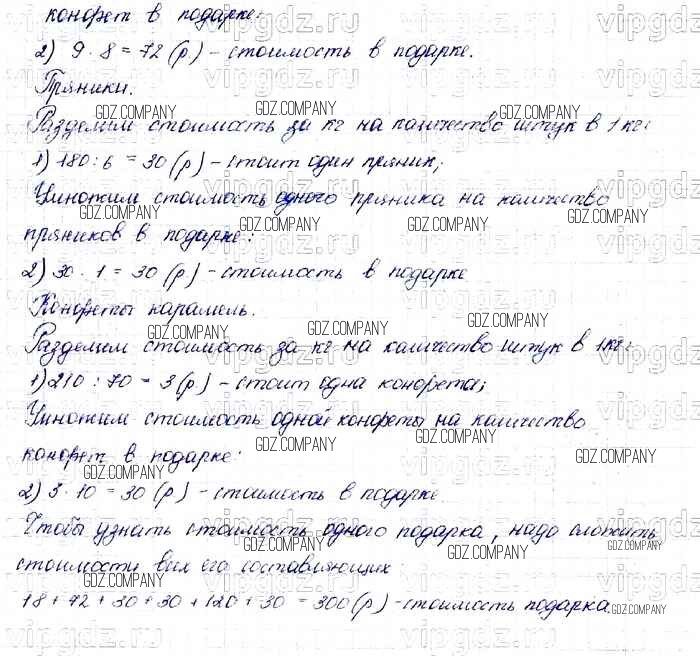 конфет в подарке:
2) 9 · 8 = 72 (р) – стоимость в подарке.
Пряники.
Разделим стоимость за кг на количество штук в 1 кг:
1) 180 : 6 = 30 (р) – стоит один пряник;
Умножим стоимость одного пряника на количество
пряников в подарке:
2) 30 · 1 = 30 (р) – стоимость в подарке
Конфеты карамель.
Разделим стоимость за кг на количество штук в 1кг:
1) 210 : 70 = 3 (р) – стоит одна конфета;
Умножим стоимость одной конфеты на количество
конфет в подарке:
2) 3 · 10 = 30 (р) – стоимость в подарке
Чтобы узнать стоимость одного подарка, надо сложить
стоимости всех его составляющих:
18 + 72 + 30 + 30 + 120 + 30 = 300 (р) – стоимость подарка.
vipgdz.ru
GDZ.COMPANY